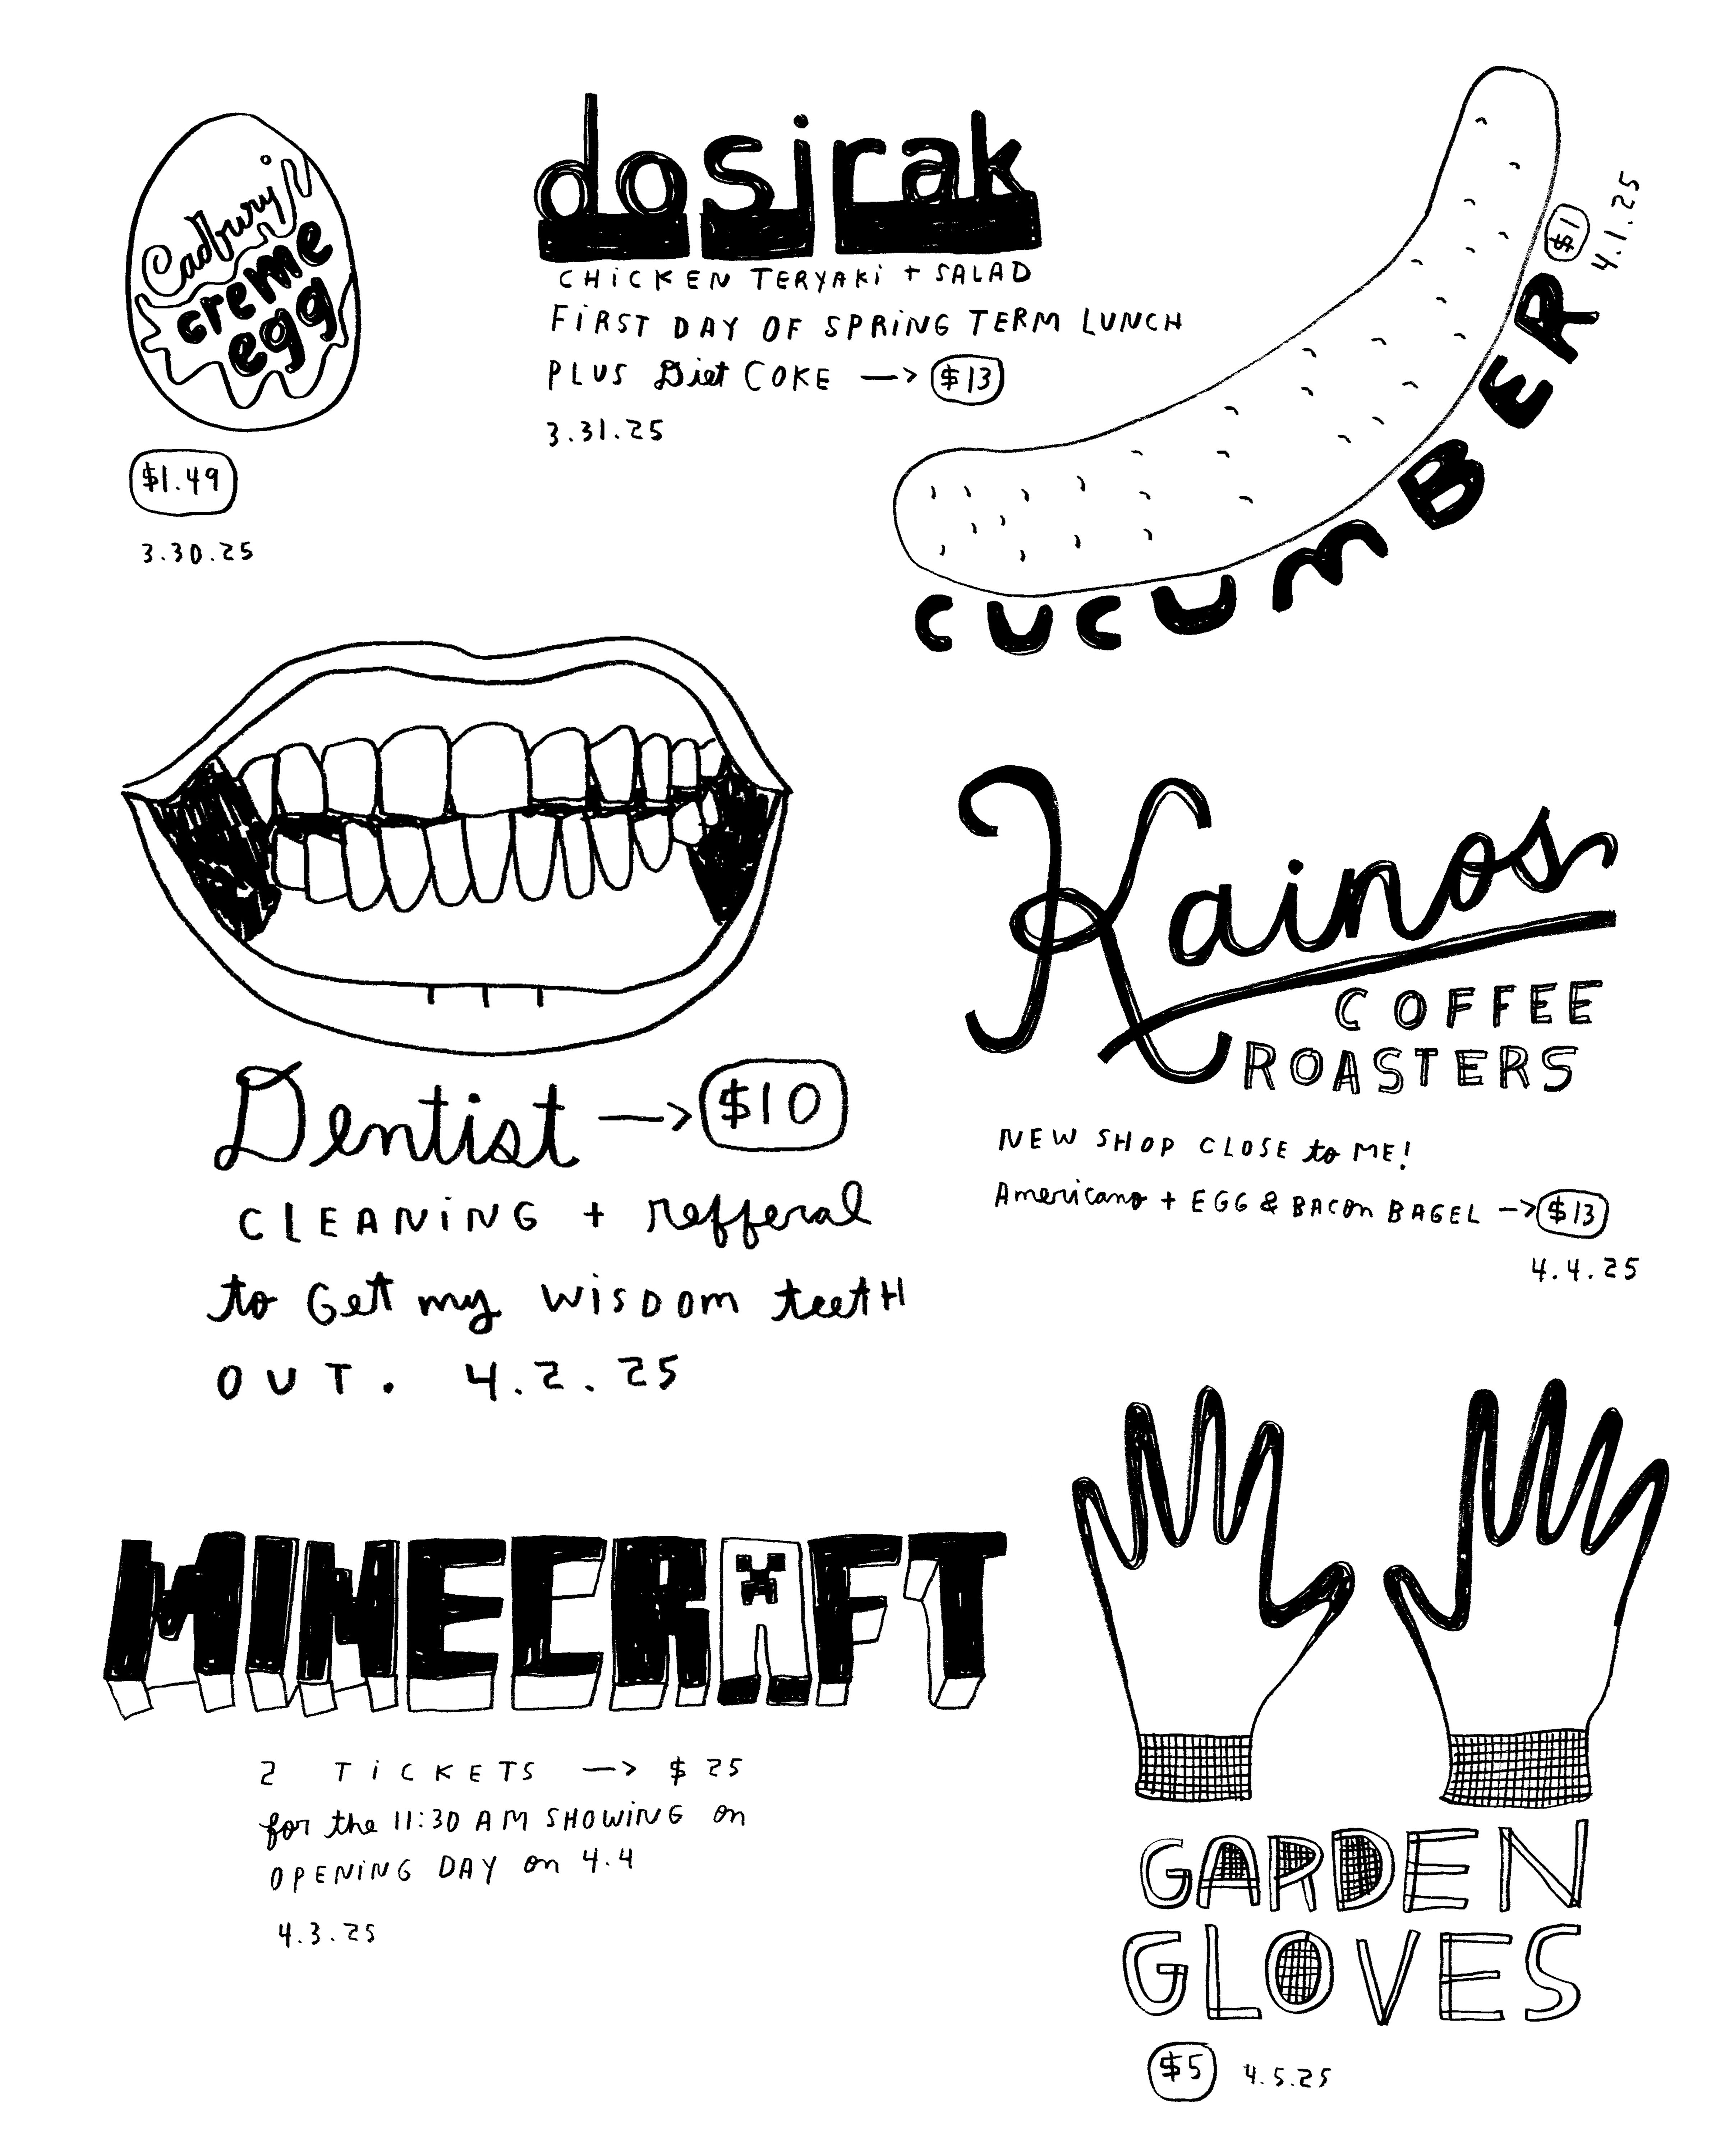 Cadbury
creme
egg
$1.49
3.30.25
dosirak
CHiCKEN TERYAKi + SALAD
FiRST DAY OF SPRiNG TERM LUNCH
PLUS Diet COKE —> $13
3.31.25
CUCUMBER
$1
4.1.25
Dentist —> $10
CLEANiNG + refferal
to Get my WiSDOm teetH
OUT. 4.2.25
Kainos
COFFEE
ROASTERS
NEW SHOP CLOSE to ME!
Americano + EGG & BACon BAGEL —> $13
4.4.25
MINECRAFT
2 TiCKETS —> $25
for the 11:30 AM SHOWiNG on
OPENiNG DAY on 4.4
4.3.25
GARDEN
GLOVES
$5 4.5.25